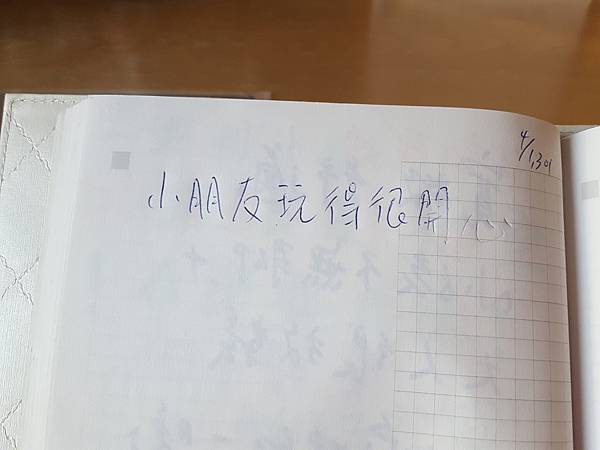 4/1,301
小朋友玩得很開心